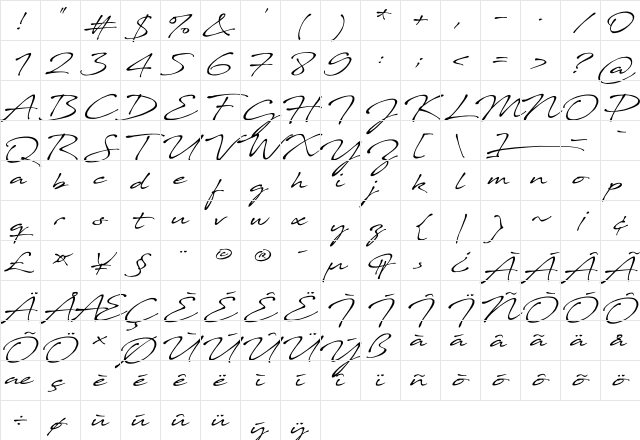 ! " # $ % & ' ( ) * + , - . / 0
1 2 3 4 5 6 7 8 9 : ; < = > ? @
A B C D E F G H I J K L M N O P
Q R S T U V W X Y Z [ \ ] _ ¯
a b c d e f g h i j k l m n o p
q r s t u v w x y z { | } ~ ¡ ¢
£ ¤ ¥ § ¨ © ® ¯ µ ¶ ¸ ¿ À Á Â Ã
Ä Å Æ Ç È É Ê Ë Ì Í Î Ï Ñ Ò Ó Ô
Õ Ö × Ø Ù Ú Û Ü Ý ß à á â ã ä å
æ ç è é ê ë ì í î ï ñ ò ó ô õ ö
÷ ø ù ú û ü ý ÿ